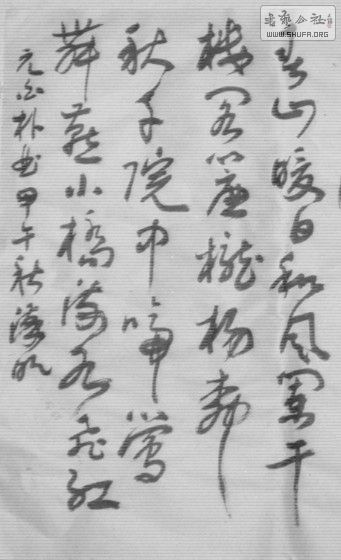 書藝公社
WWW.SHUFA.ORG
春山暖日和风闌干
楼阁簾櫳杨柳
秋千院中啼鶯
舞燕小橋流水飛红
元白朴曲甲午秋